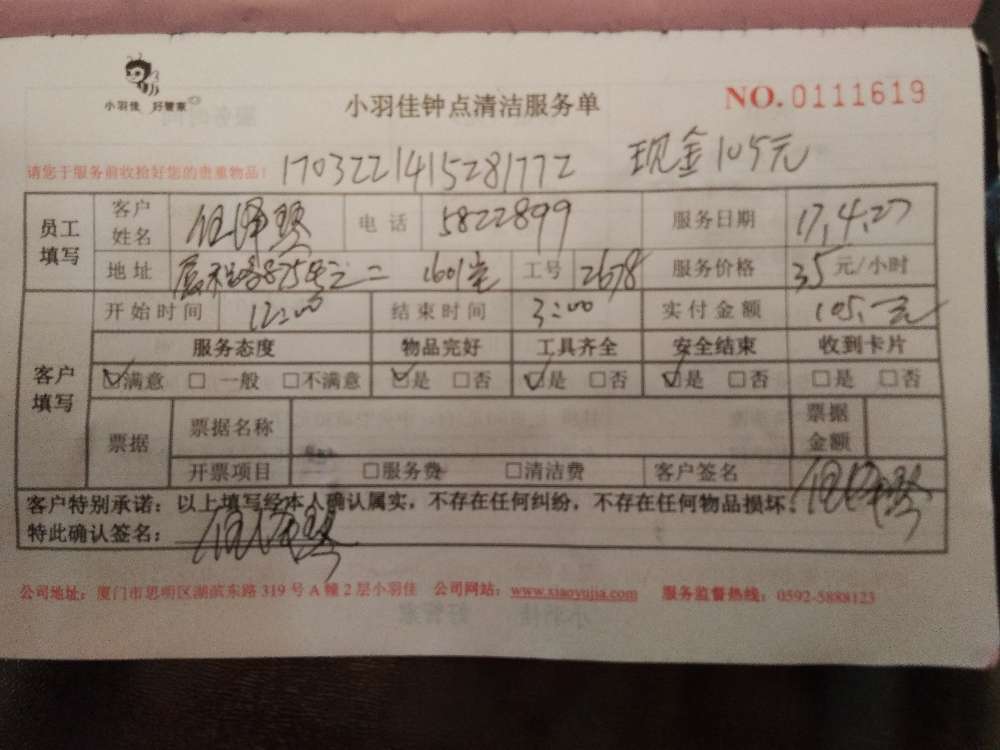 小羽佳 好管家
小羽佳钟点清洁服务单
NO. 0111619
请您于服务前收拾好您的贵重物品!
1703221415281772 现金105元
员工填写 客户姓名 电话 5822899 服务日期 17.4.27
地址 875号之二 1601室 工号 2678 服务价格 35元/小时
客户填写 开始时间 12:00 结束时间 3:00 实付金额 105.元
服务态度 物品完好 工具齐全 安全结束 收到卡片
☑满意 □一般 □不满意 ☑是 □否 ☑是 □否 ☑是 □否 □是 □否
票据 票据名称 票据金额
开票项目 □服务费 □清洁费 客户签名
客户特别承诺:以上填写经本人确认属实,不存在任何纠纷,不存在任何物品损坏.
特此确认签名:
公司地址:厦门市思明区湖滨东路319号A幢2层小羽佳 公司网站:www.xiaoyujia.com 服务监督热线:0592-5888123